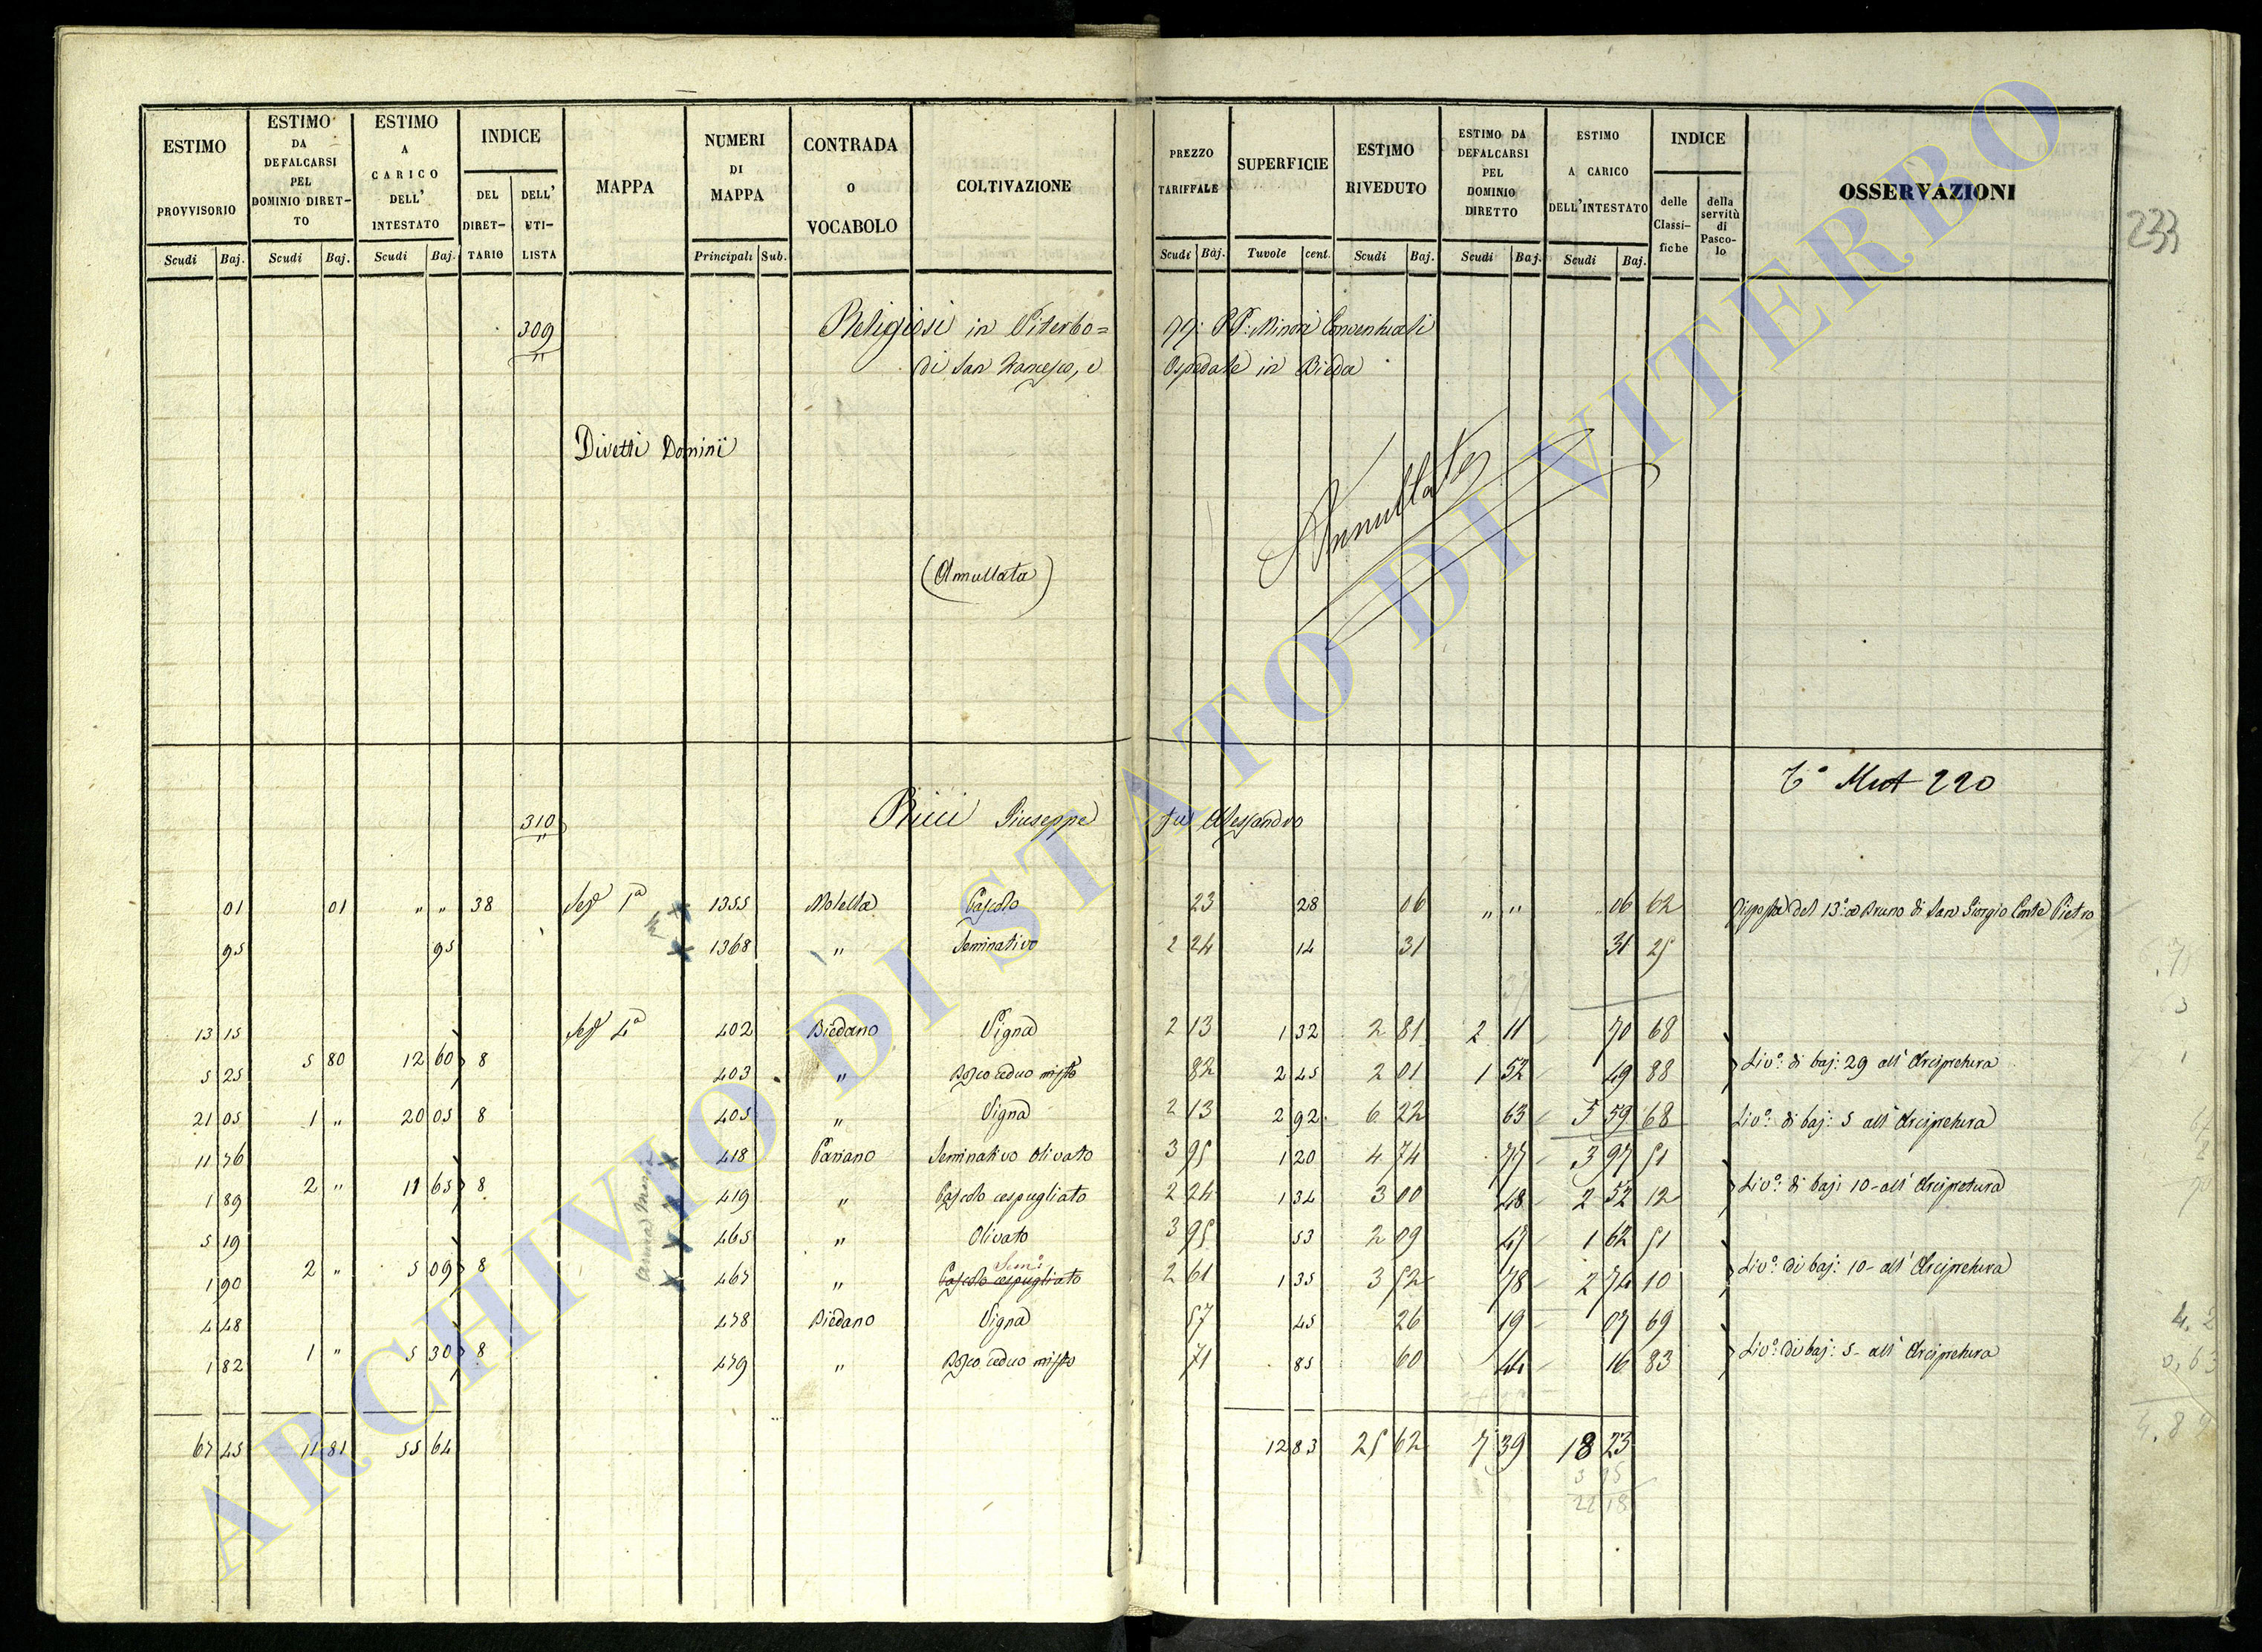 ESTIMO PROVVISORIO | ESTIMO DA DEFALCARSI PEL DOMINIO DIRET-TO | ESTIMO A CARICO DELL' INTESTATO | INDICE | MAPPA | NUMERI DI MAPPA | CONTRADA O VOCABOLO | COLTIVAZIONE | PREZZO TARIFFALE | SUPERFICIE | ESTIMO RIVEDUTO | ESTIMO DA DEFALCARSI PEL DOMINIO DIRETTO | ESTIMO A CARICO DELL'INTESTATO | INDICE | OSSERVAZIONI
DEL DIRET-TARIO | DELL' UTI-LISTA | delle Classi-fiche | della servitù di Pasco-lo
Scudi | Baj. | Scudi | Baj. | Scudi | Baj. | Principali | Sub. | Scudi | Baj. | Tavole | cent. | Scudi | Baj. | Scudi | Baj. | Scudi | Baj.
233
309 Religiosi in Viterbo = PP: Minori Conventuali
di San Francesco, e Ospedale in Bieda
Diretti Dominii
Annullata
(Annullata)
Mut 220
310 Ricci Giuseppe fu Alessandro
01 | 01 | " " | 38 | Sez 1a | 1355 | Molella | Pascolo | 23 | 28 | 06 | " " | 06 | 62 | del 13.o a Bruno di San Giorgio Conte Pietro
95 | 95 | 1368 | " | Seminativo | 2 24 | 14 | 31 | 31 | 25
13 15 | Sez 4a | 402 | Biedano | Vigna | 2 13 | 1 32 | 2 81 | 2 11 | 70 | 68
5 80 | 12 60 | 8 | Livo: di baj: 29 all' Arcipretura
5 25 | 403 | " | Bosco ceduo misto | 82 | 2 45 | 2 01 | 1 52 | 49 | 88
21 05 | 1 " | 20 05 | 8 | 405 | " | Vigna | 2 13 | 2 92 | 6 22 | 63 | 5 59 | 68 | Livo: di baj: 5 all' Arcipretura
11 76 | 418 | Pariano | Seminativo olivato | 3 95 | 1 20 | 4 74 | 77 | 3 97 | 51
2 " | 11 65 | 8 | Livo: di baj: 10 - all' Arcipretura
1 89 | 419 | " | Pascolo cespugliato | 2 24 | 1 34 | 3 00 | 48 | 2 52 | 12
5 19 | 465 | " | Olivato | 3 95 | 53 | 2 09 | 47 | 1 62 | 51
2 " | 5 09 | 8 | Livo: di baj: 10 - all' Arcipretura
Semo
1 90 | 467 | " | Pascolo cespugliato | 2 61 | 1 35 | 3 52 | 78 | 2 74 | 10
4 48 | 478 | Biedano | Vigna | 57 | 45 | 26 | 19 | 07 | 69
1 " | 5 30 | 8 | Livo: di baj: 5 - all' Arcipretura
1 82 | 479 | " | Bosco ceduo misto | 71 | 85 | 60 | 44 | 16 | 83
67 45 | 11 81 | 55 64 | 12 83 | 25 62 | 7 39 | 18 23
3 95
22 18
ARCHIVIO DI STATO DI VITERBO